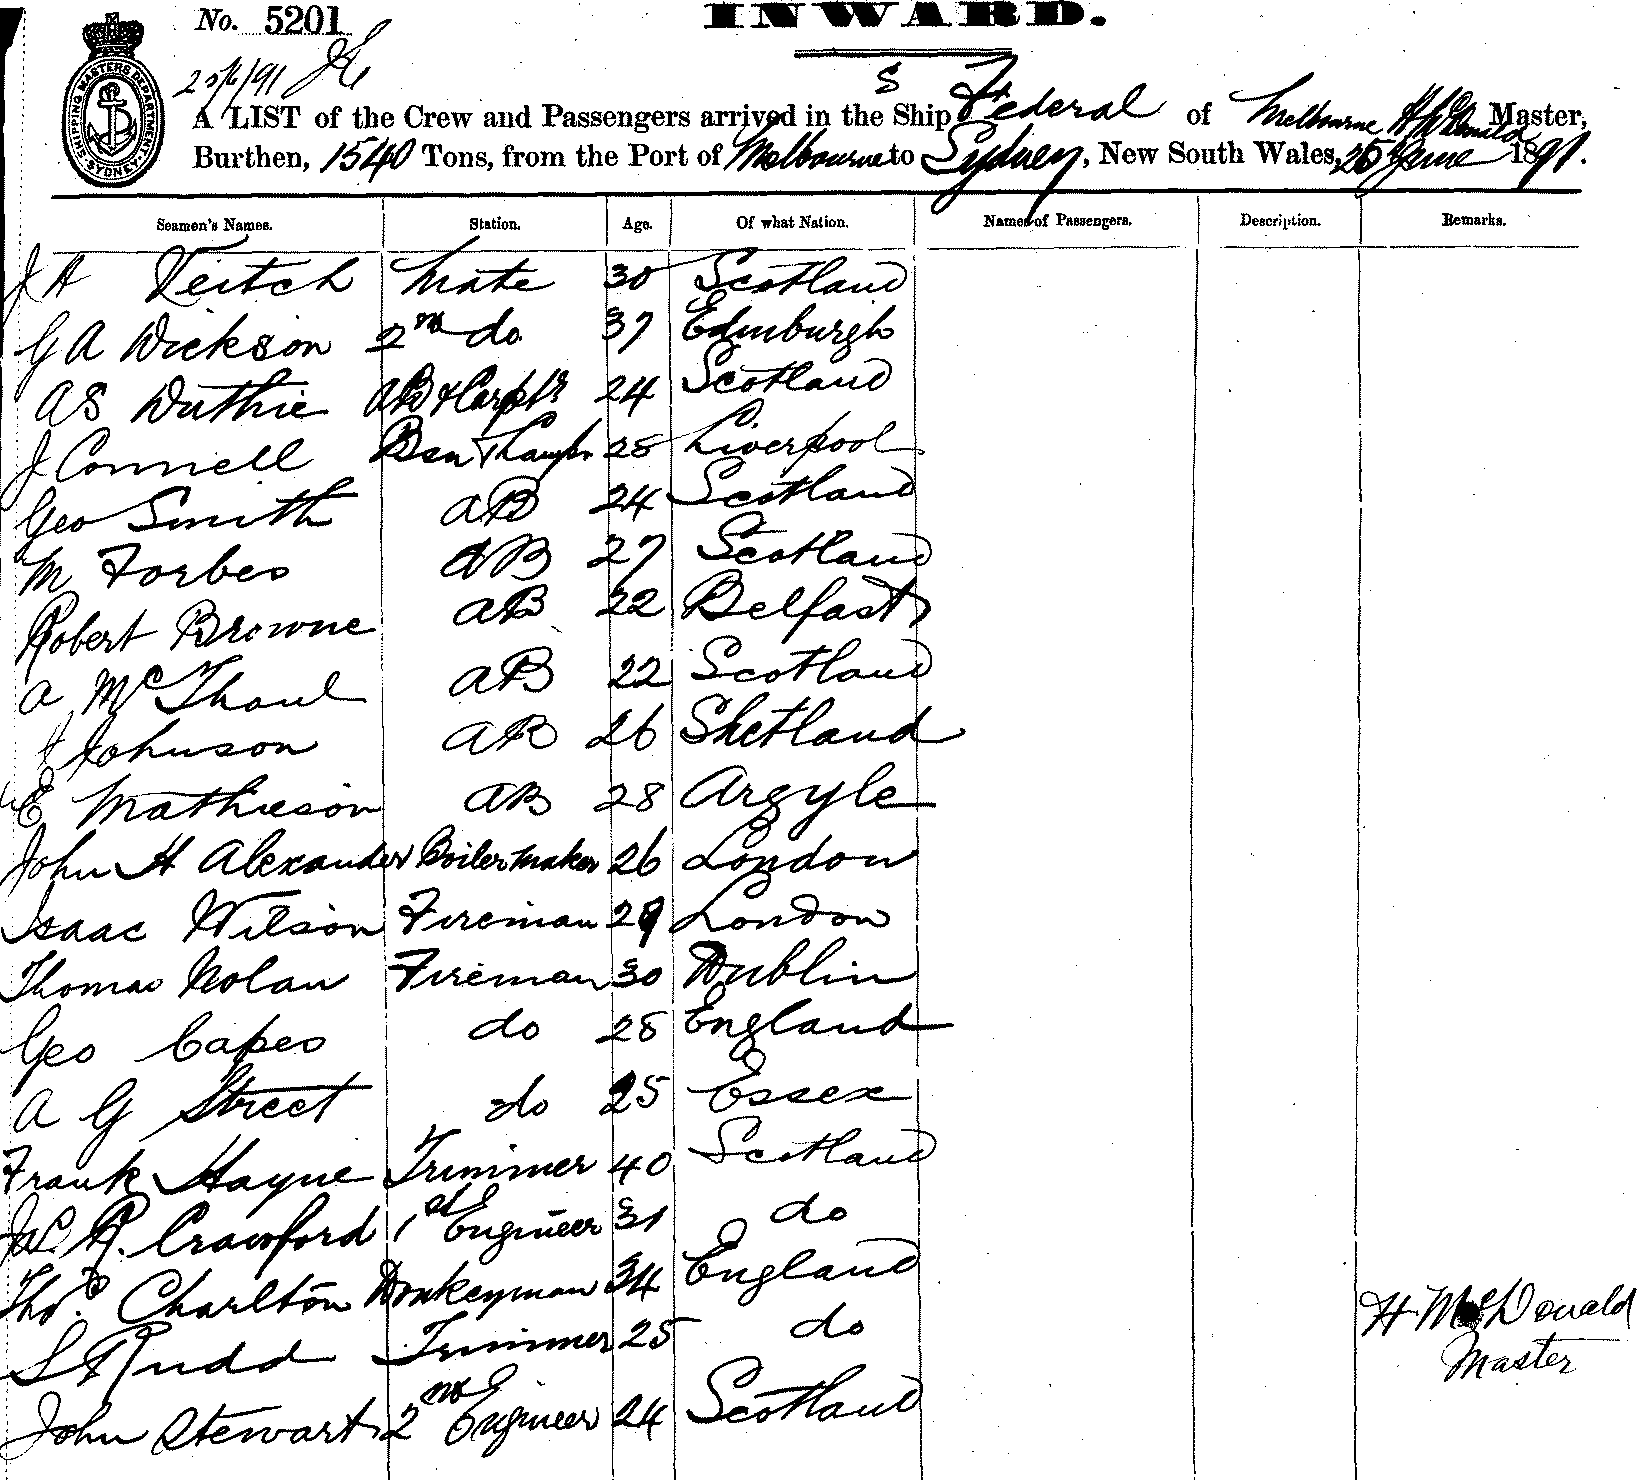 No. 5201
INWARD.
25/6/91
SHIPPING MASTERS DEPARTMENT SYDNEY
S
A LIST of the Crew and Passengers arrived in the Ship Federal of Melbourne H McDonald Master,
Burthen, 1540 Tons, from the Port of Melbourne to Sydney, New South Wales, 25 June 1891.
Seamen's Names. Station. Age. Of what Nation. Names of Passengers. Description. Remarks.
J A Veitch Mate 30 Scotland
G A Dickson 2nd do 37 Edinburgh
A S Duthie AB & Carptr 24 Scotland
J Connell Bsn & Lamps 28 Liverpool
Geo Smith AB 24 Scotland
M Forbes AB 27 Scotland
Robert Browne AB 22 Belfast
A McThoul AB 22 Scotland
J Johnson AB 26 Shetland
E Mathieson AB 28 Argyle
John H Alexander Boiler maker 26 London
Isaac Wilson Fireman 29 London
Thomas Nolan Fireman 30 Dublin
Geo Capes do 28 England
A G Street do 25 Essex
Frank Hayne Trimmer 40 Scotland
R. Crawford 1st Engineer 31 do
Thos. Charlton Donkeyman 34 England
S Rudd Trimmer 25 do
John Stewart 2nd Engineer 24 Scotland
H McDonald
Master